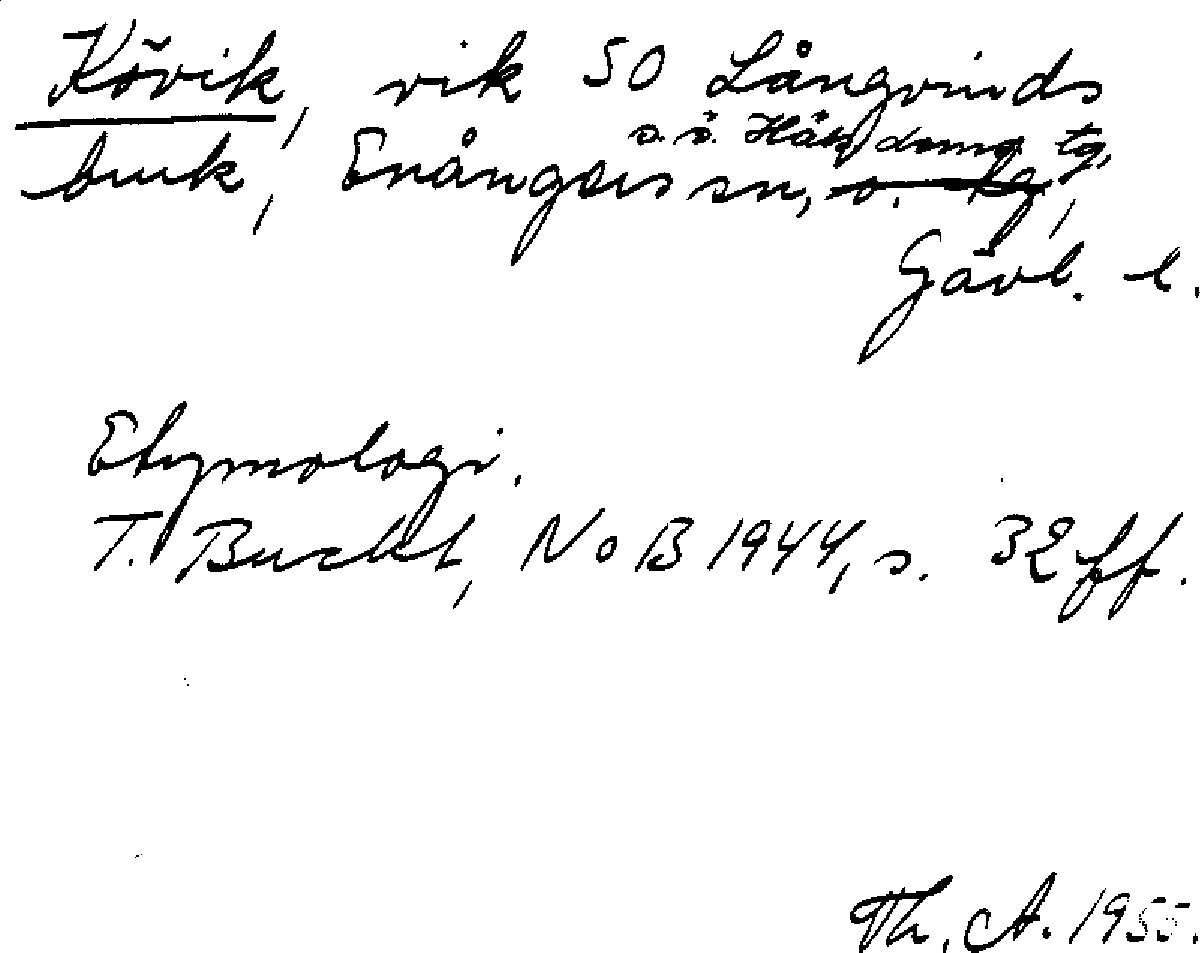 Kövik, vik SO Långvinds
bruk, Enångers sn, s.ö. Häls. doms. tg,
Gävl. l.
Etymologi.
T. Bucht, NoB 1944, s. 32 ff.
Th. A. 1955.